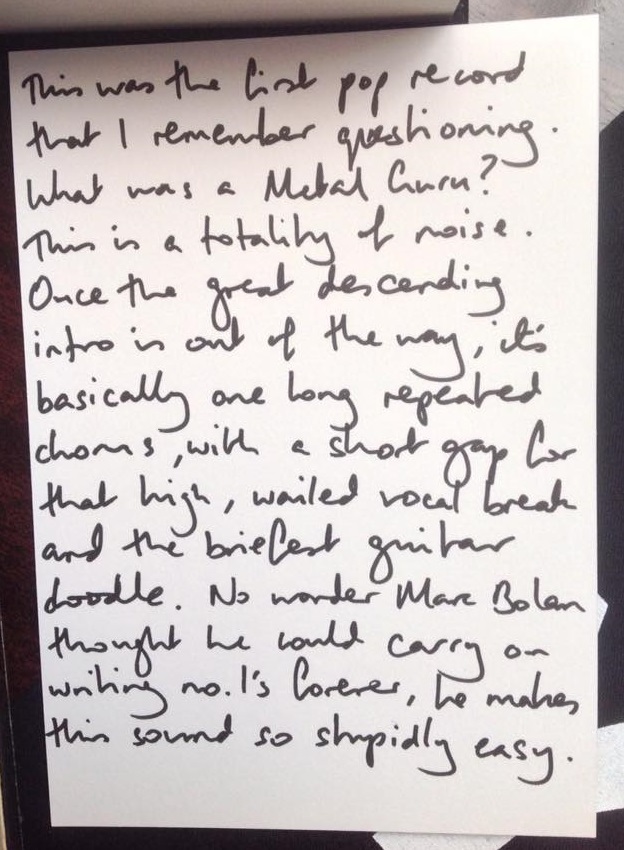 This was the first pop record
that I remember questioning.
What was a Metal Guru?
This is a totality of noise.
Once the great descending
intro is out of the way, it's
basically one long repeated
chorus, with a short gap for
that high, wailed vocal break
and the briefest guitar
doodle. No wonder Marc Bolan
thought he could carry on
writing no.1's forever, he makes
this sound so stupidly easy.